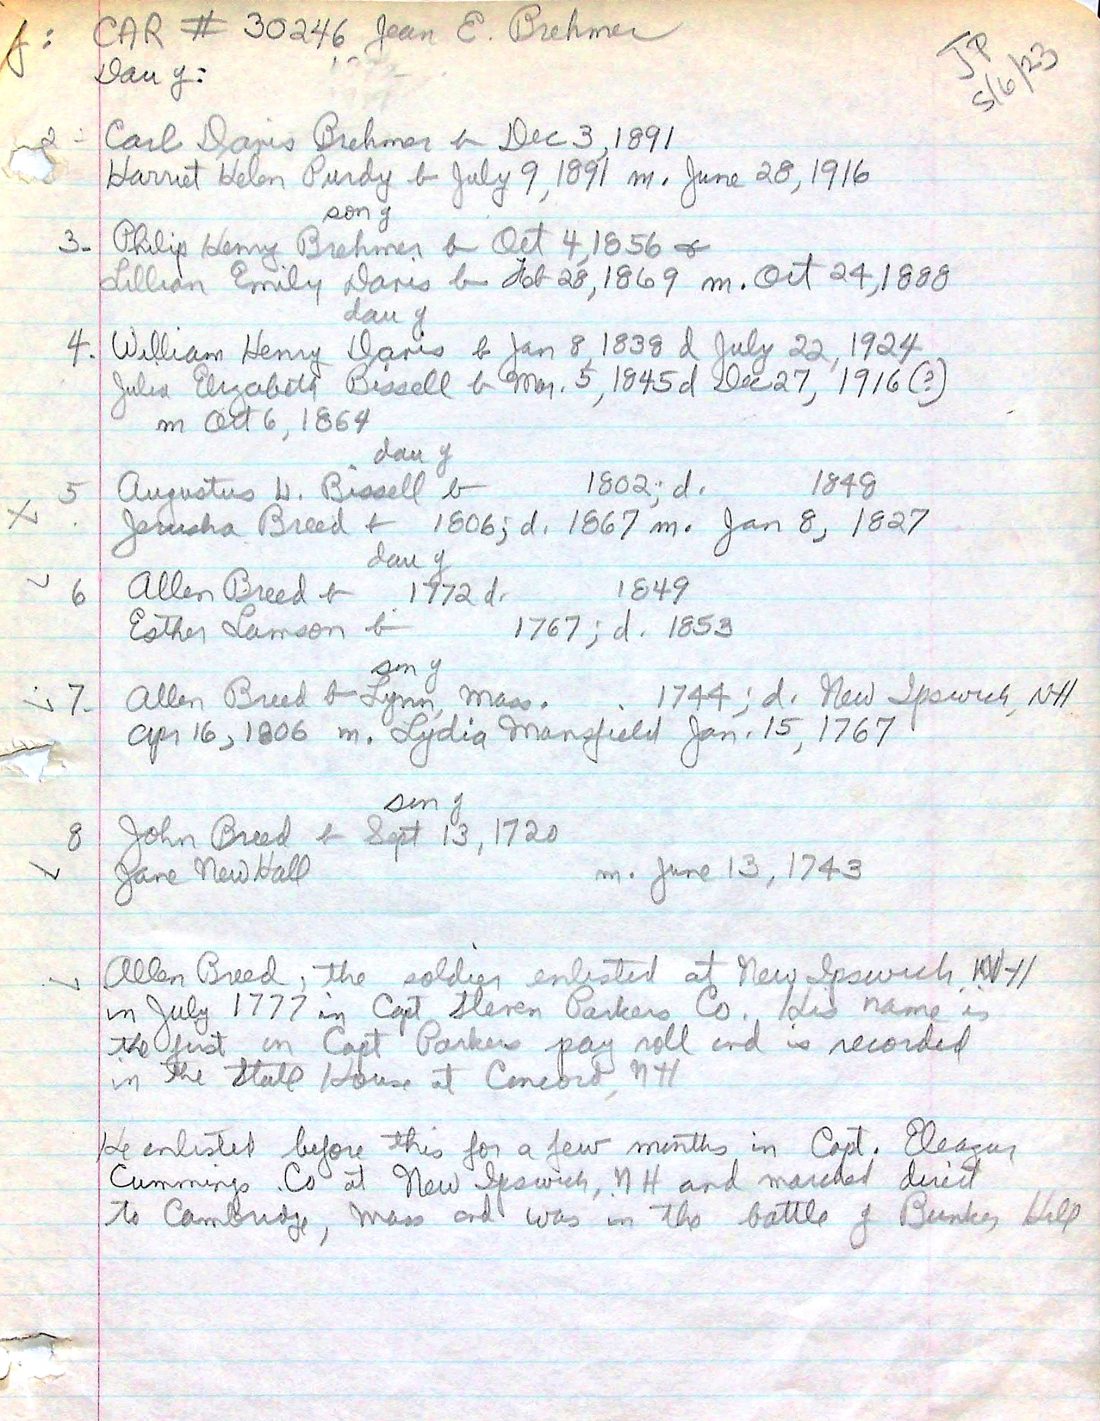 f: CAR # 30246 Jean E. Brehmer
Dau of:
JP
5/6/23
2 - Carl Davis Brehmer b Dec 3, 1891
Harriet Helen Purdy b July 9, 1891 m. June 28, 1916
son of
3- Philip Henry Brehmer b Oct 4, 1856 &
Lillian Emily Davis b Feb 28, 1869 m. Oct 24, 1888
dau of
4. William Henry Davis b Jan 8, 1838 d July 22, 1924
Julia Elizabeth Bissell b Mar. 5, 1845 d Dec 27, 1916 (?)
m Oct 6, 1864
dau of
5 Augustus W. Bissell b 1802; d. 1848
X Jerusha Breed b 1806; d. 1867 m. Jan 8, 1827
dau of
✓ 6 Allen Breed b 1772 d. 1849
Esther Lamson b 1767; d. 1853
son of
7. Allen Breed b Lynn, Mass. 1744; d. New Ipswich, NH
Apr 16, 1806 m. Lydia Mansfield Jan. 15, 1767
son of
8 John Breed b Sept 13, 1720
✓ Jane NewHall m. June 13, 1743
✓ Allen Breed, the soldier enlisted at New Ipswich, NH
in July 1777 in Capt Steven Parkers Co. His name is
the first on Capt Parkers pay roll and is recorded
in the State House at Concord, NH
He enlisted before this for a few months in Capt. Eleazar
Cummings Co at New Ipswich, NH and marched direct
to Cambridge, Mass and was in the battle of Bunker Hill